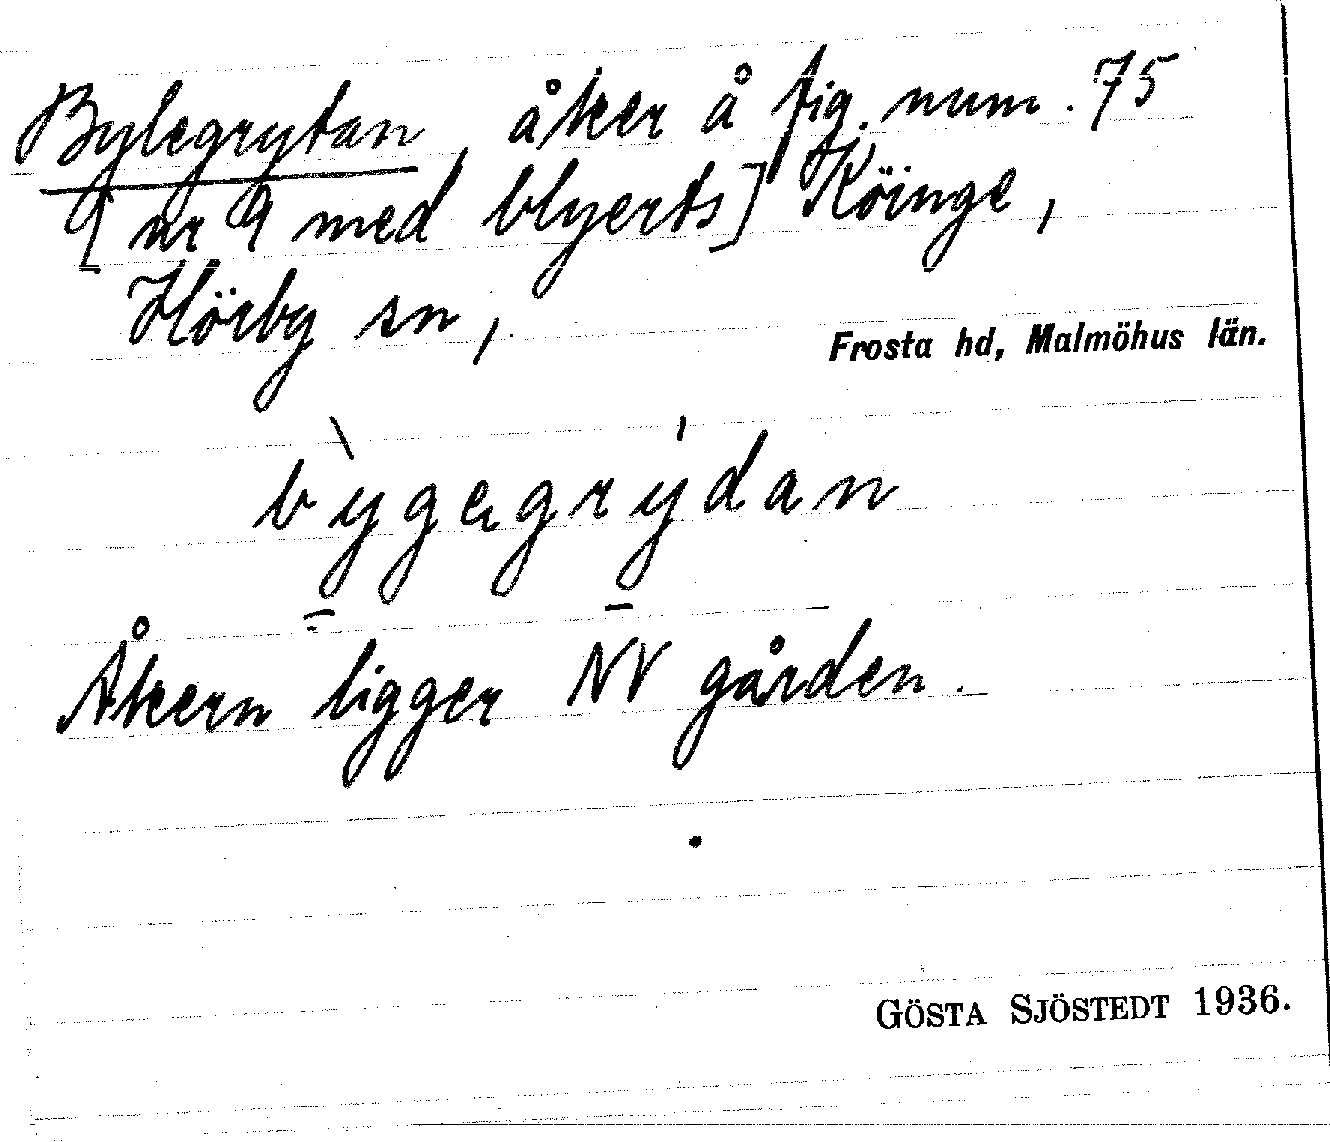 Bylegrytan, åker å fig. num. 75
[nr 9 med blyerts] Köinge,
Hörby sn,
Frosta hd, Malmöhus län.
bỳgegrýdan
Åkern ligger NV gården.
GÖSTA SJÖSTEDT 1936.